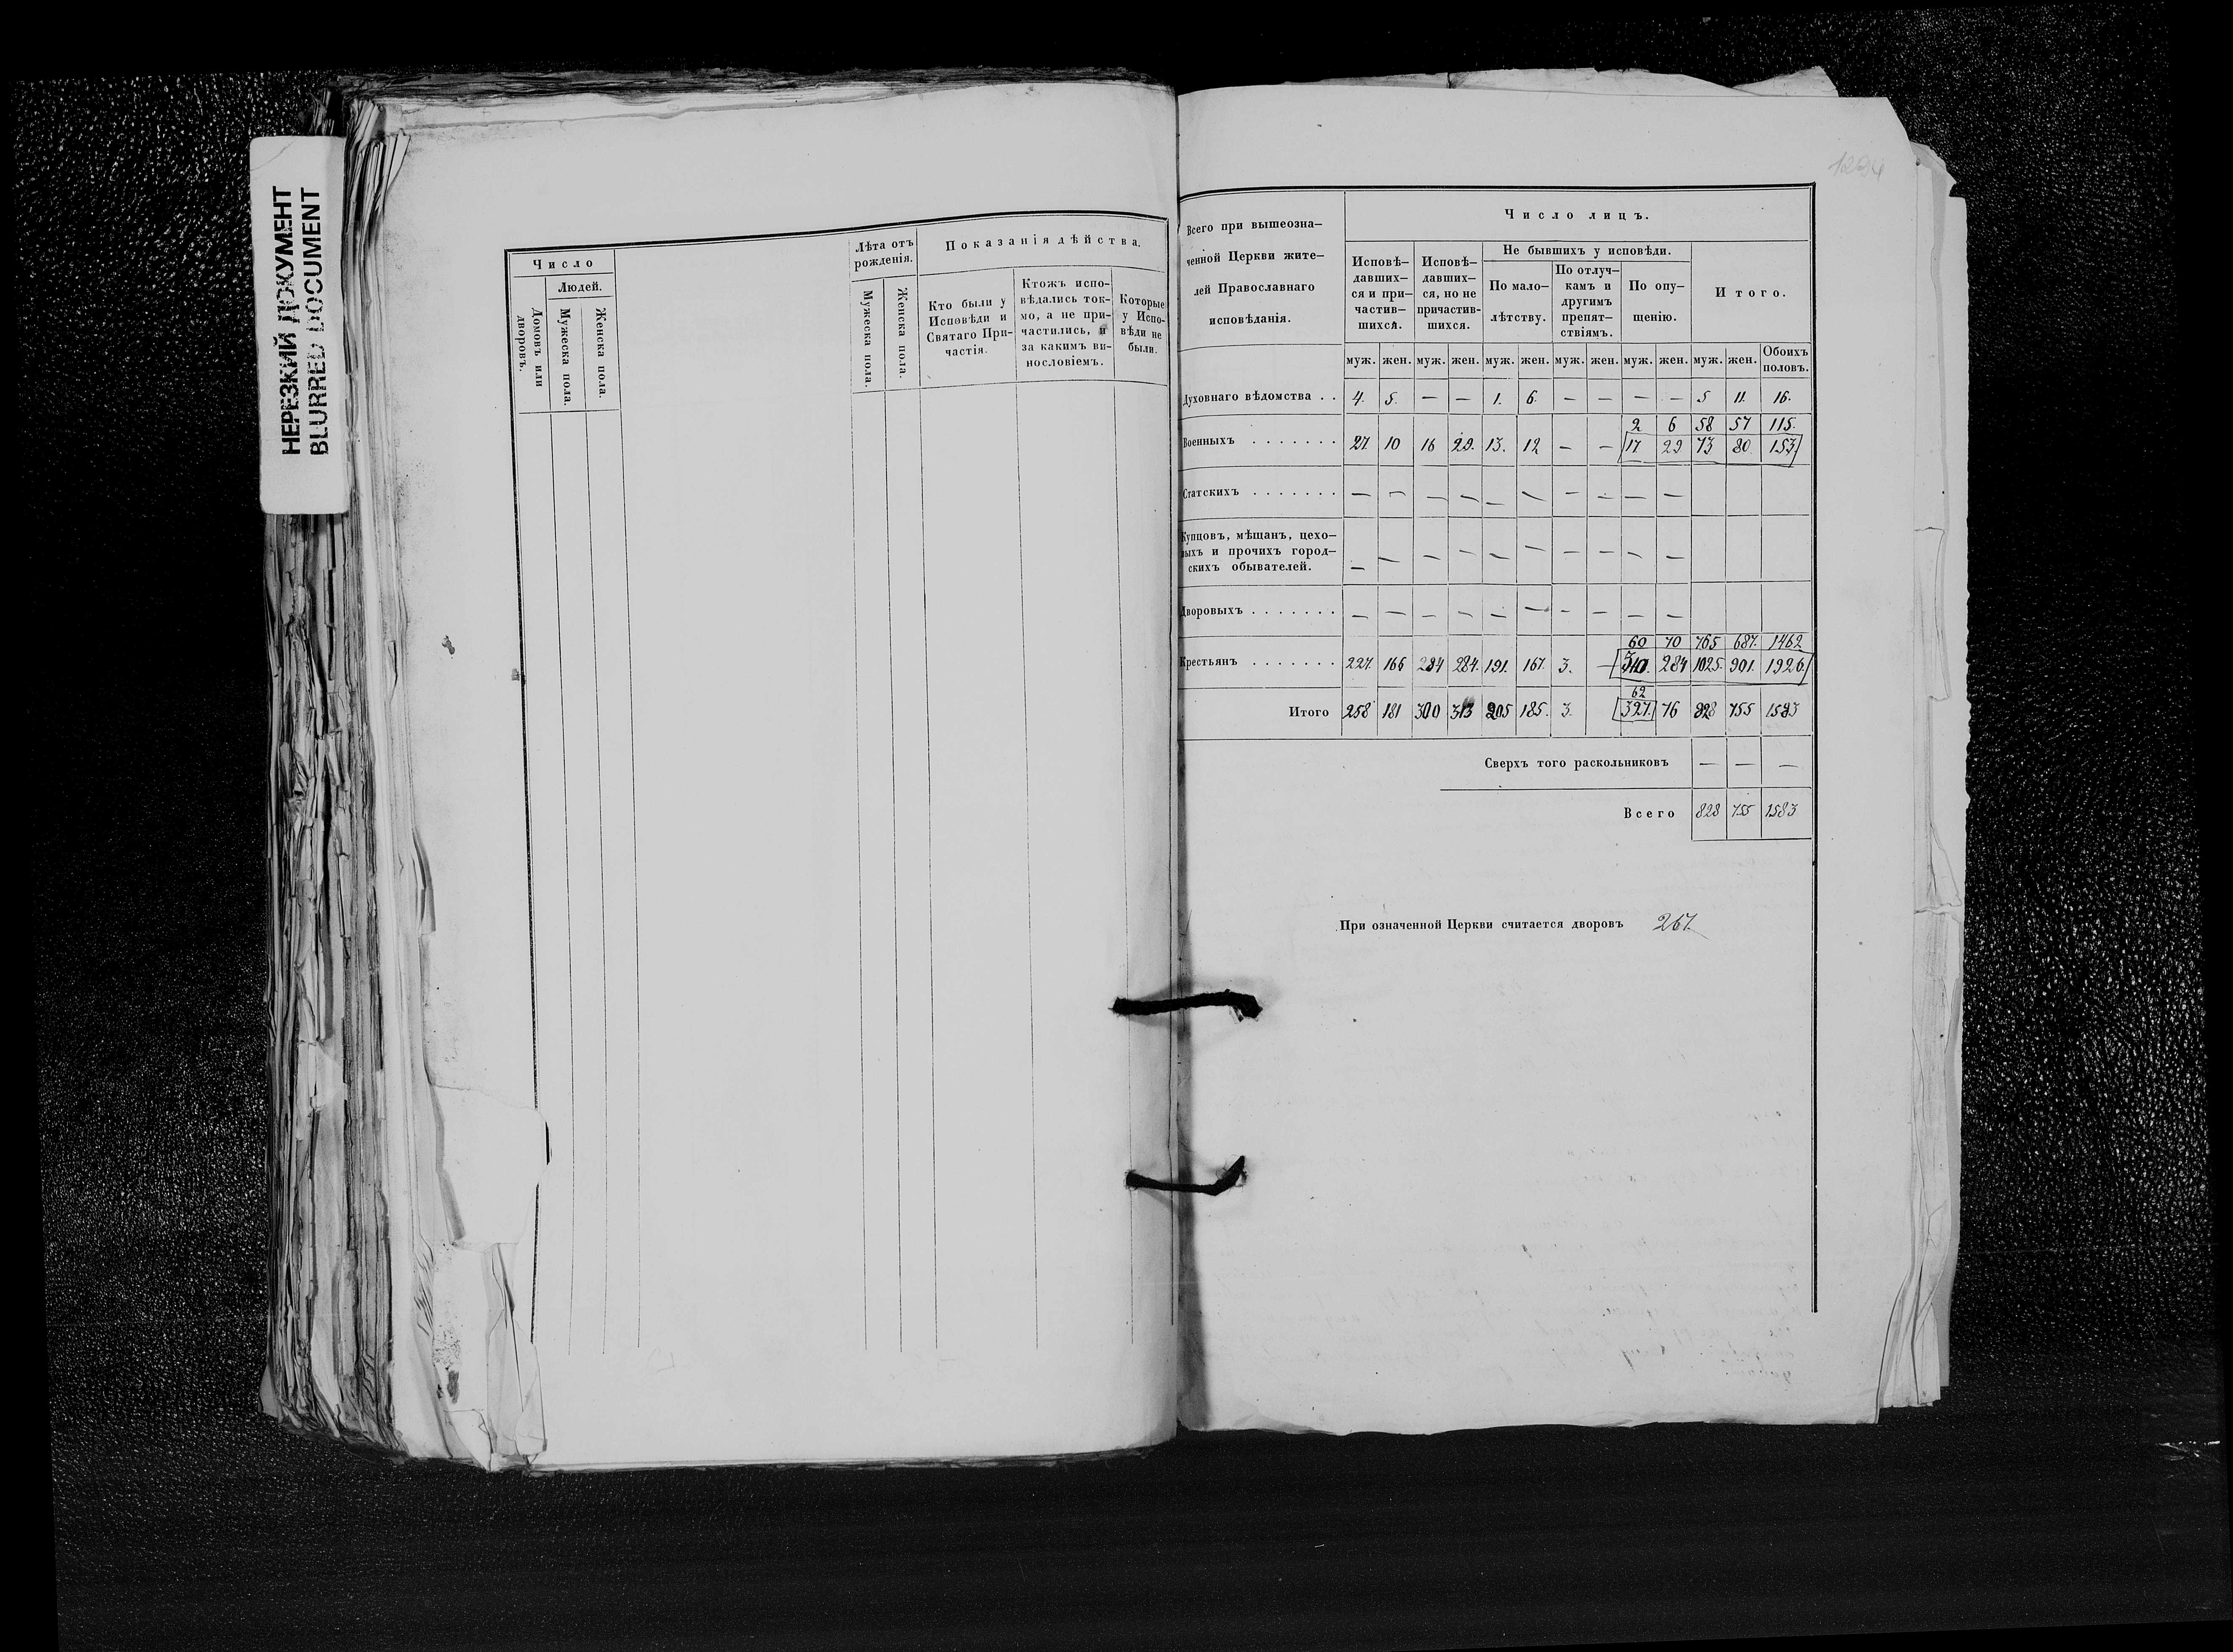 НЕРЕЗКИЙ ДОКУМЕНТ
BLURRED DOCUMENT
Число
Людей.
Домовъ или дворовъ.
Мужеска пола.
Женска пола.
Лѣта отъ рожденія.
Мужеска пола.
Женска пола.
Показанія дѣйства.
Кто были у Исповѣди и Святаго Причастія.
Ктожъ исповѣдались токмо, а не причастились, и за какимъ винословіемъ.
Которые у Исповѣди не были.
Всего при вышеозна-
ченной Церкви жите-
лей Православнаго
исповѣданія.
Число лицъ.
Исповѣ-
давших-
ся и при-
частив-
шихся.
Исповѣ-
давших-
ся, но не
причастив-
шихся.
Не бывшихъ у исповѣди.
По мало-
лѣтству.
По отлуч-
камъ и
другимъ
препят-
ствіямъ.
По опу-
щенію.
Итого.
муж. жен. муж. жен. муж. жен. муж. жен. муж. жен. муж. жен. Обоихъ половъ.
Духовнаго вѣдомства . . 4. 5. — — 1. 6. — — — — 5 11. 16.
2 6 58 57 115.
Военныхъ . . . . . . . 27. 10 16 29. 13. 12 — — 17 29 73 80 153
Статскихъ . . . . . . . — — — — — — — — — —
Купцовъ, мѣщанъ, цехо-
выхъ и прочихъ город-
скихъ обывателей. — — — — — — — — — —
Дворовыхъ . . . . . . . — — — — — — — — — —
60 70 765 687. 1462
Крестьянъ . . . . . . . 227. 166 284 284. 191. 167. 3. — 340. 284 1025. 901. 1926
62
Итого 258 181 300 313 205 185. 3. 327. 76 828 755 1583
Сверхъ того раскольниковъ — — —
Всего 828 755 1583
При означенной Церкви считается дворовъ 267.